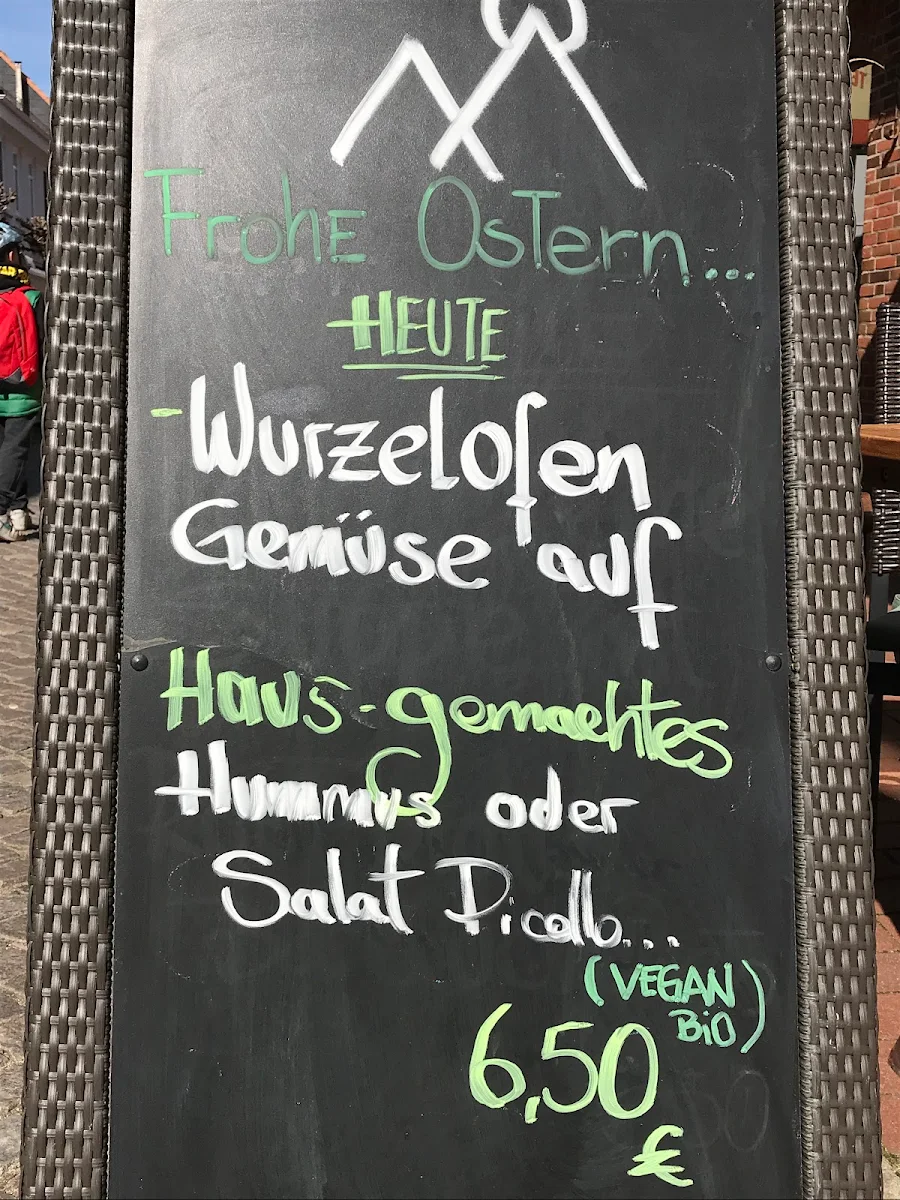 Frohe Ostern...
HEUTE
- Wurzelofen
Gemüse auf
Haus-gemachtes
Hummus oder
Salat Picollo...
(VEGAN
BiO)
6,50
€